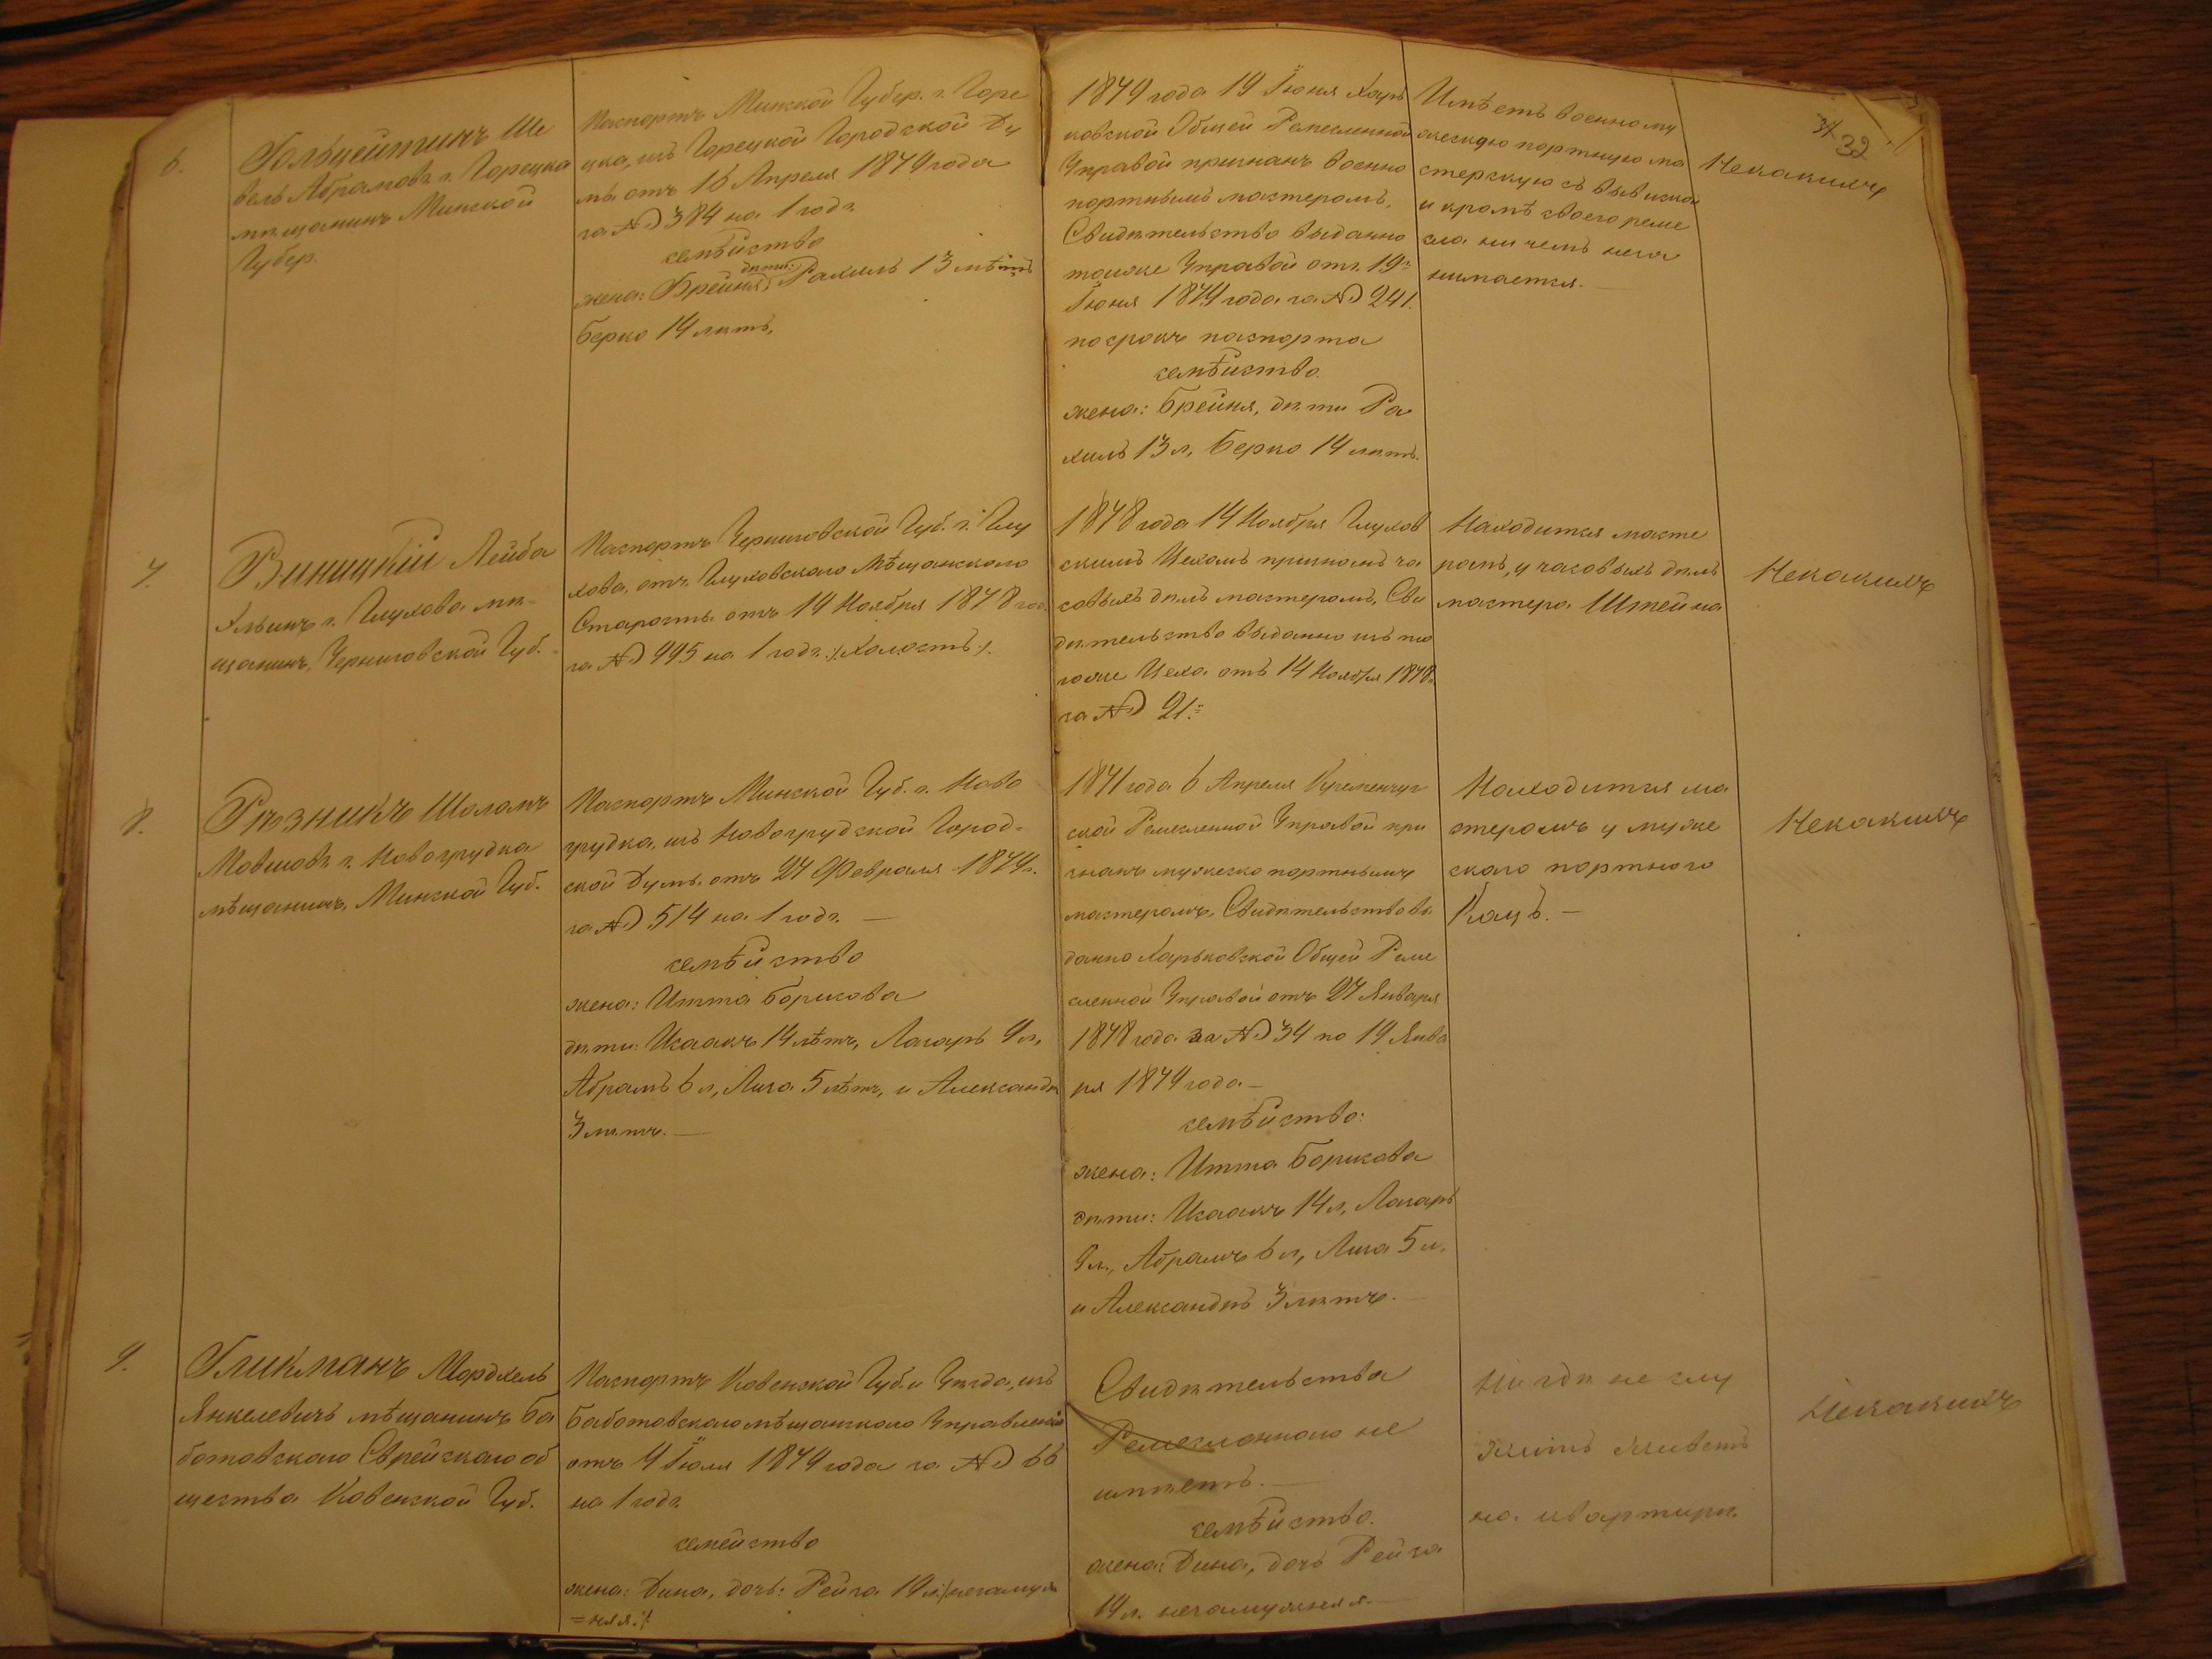 32
6.
Гольцейтинъ Ше
вель Абрамовъ г. Горецка
мѣщанинъ Минской
Губер.
Паспортъ Минской Губер. г. Горе
цка, изъ Горецкой Городской Ду
мы отъ 16 Апреля 1879 года
за № 384 на 1 годъ.
семѣйство
дѣти:
жена: Брейня, Рахиль 13 лѣтъ
Берко 14 лѣтъ.
1879 года 19 Іюня Харь
ковской Общей Ремесленной
Управой признанъ военно
портнымъ мастеромъ,
Свидѣтельство выданно
тоюже Управой отъ 19
Іюня 1879 года за № 241.
по срокъ паспорта
семѣйство.
жена: Брейня, дѣти Ра
хиль 13 л, Берко 14 лѣтъ.
Имѣетъ военному
жескую портную ма
стерскую съ вывиской
и кромѣ своего реме
сла ни чемъ неза
нимается.
Некакихъ
7.
Виницкій Лейба
Хльинъ г. Глухова мѣ-
щанинъ, Черниговской Губ.
Паспортъ Черниговской Губ. г. Глу
хова, отъ Глуховскаго Мѣщанскаго
Старосты отъ 14 Ноября 1878 год.
за № 995 на 1 годъ. /Холостъ/.
1878 года 14 Ноября Глухов
скимъ Цехомъ признанъ ча
совыхъ дѣлъ мастеромъ, Сви
дѣтельство выданно изъ то
гоже Цеха отъ 14 Ноября 1878.
за № 21.
Находится масте
ромъ, у часовыхъ дѣлъ
мастера Штейна
Некакихъ
8.
Рѣзникъ Шоломъ
Мовшовъ г. Новогрудка
мѣщанинъ, Минской Губ.
Паспортъ Минской Губ. г. Ново
грудка, изъ Новогрудской Город-
ской Думы отъ 27 Февраля 1879 г.
за № 514 на 1 годъ. —
семѣйство
жена: Итта Борисова
дѣти: Исаакъ 14 лѣтъ, Лазарь 9 л,
Абрамъ 6 л, Лиза 5 лѣтъ, и Александъ
3 лѣтъ. —
1871 года 6 Апреля Кременчуг
ской Ремесленной Управой при
знанъ мужеско портнымъ
мастеромъ, Свидѣтельство вы
данно Харьковской Общей Реме
сленной Управой отъ 27 Января
1878 года за № 34 по 19 Янва
ря 1879 года —
семѣйство:
жена: Итта Борисова
дѣти: Исаакъ 14 л, Лазарь
9 л., Абрамъ 6 л, Лиза 5 л,
и Александъ 3 лѣтъ. —
Находится ма
стеромъ у муже
скаго портного
Кацъ. —
Некакихъ
9.
Гликманъ Мордхель
Янкелевичъ мѣщанинъ Ба
ботовскаго Еврейскаго об
щества Ковенской Губ.
Паспортъ Ковенской Губ. и Уѣзда, изъ
Баботовскаго мѣщанскаго Управленія
отъ 4 Іюля 1879 года за № 66
на 1 годъ.
семейство
жена: Дина, дочь: Рейза 19 л. /незамуж
=няя./
Свидѣтельства
Ремесленного не
имѣетъ. —
семѣйство.
жена: Дина, дочь Рейза
19 л. незамужняя. —
Ни гдѣ не слу
житъ живетъ
на квартирѣ.
Некакихъ